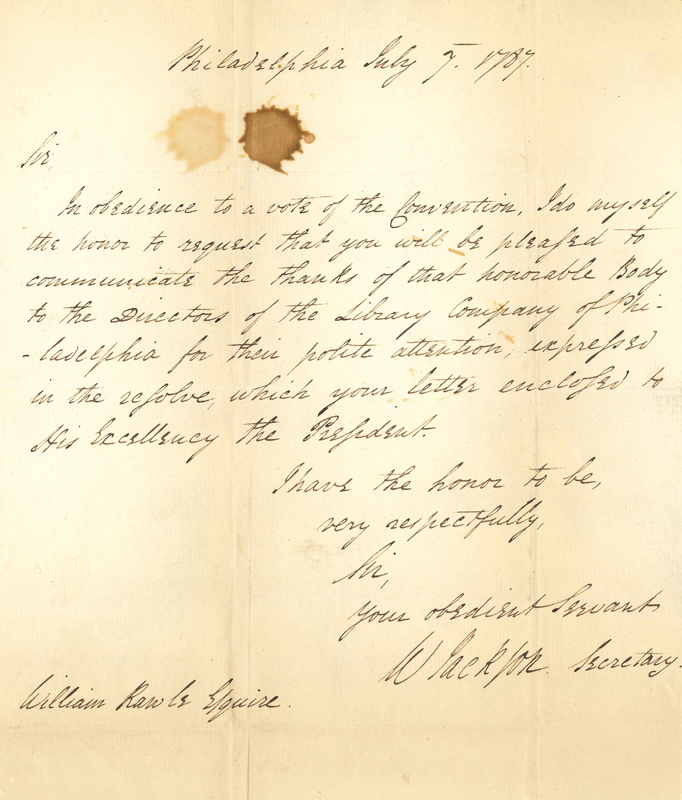 Philadelphia July 7. 1787.
Sir,
In obedience to a vote of the Convention, I do myself
the honor to request that you will be pleased to
communicate the thanks of that honorable Body
to the Directors of the Library Company of Phi-
-ladelphia for their polite attention, expressed
in the resolve, which your letter enclosed to
His Excellency the President.
I have the honor to be,
very respectfully,
Sir,
your obedient Servant
W Jackson. Secretary.
William Rawle Esquire.